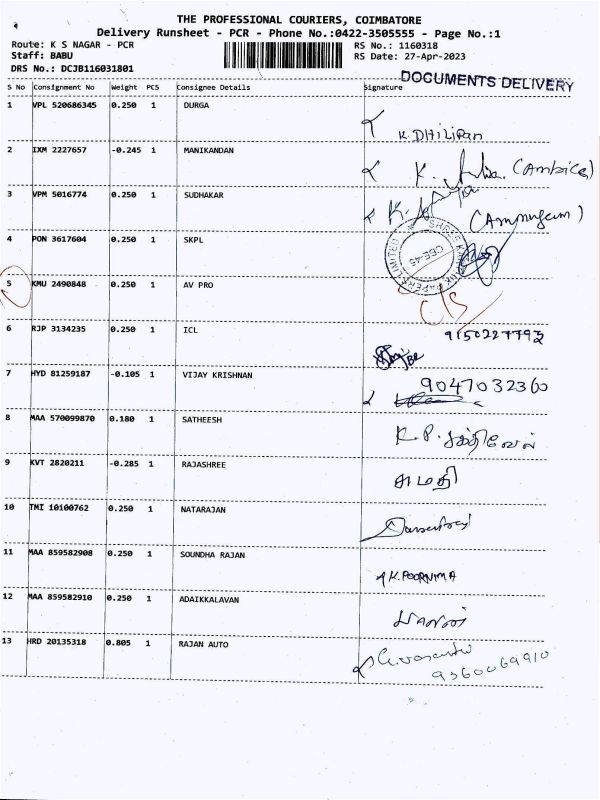 THE PROFESSIONAL COURIERS, COIMBATORE
Delivery Runsheet - PCR - Phone No.:0422-3505555 - Page No.:1
Route: K S NAGAR - PCR RS No.: 1160318
Staff: BABU RS Date: 27-Apr-2023
DRS No.: DCJB116031801
DOCUMENTS DELIVERY
S No Consignment No Weight PCS Consignee Details Signature
1 VPL 520686345 0.250 1 DURGA
K. DHILIPAN
2 IXM 2227657 -0.245 1 MANIKANDAN
K. (Ambica)
3 VPM 5016774 0.250 1 SUDHAKAR
K.
4 PON 3617604 0.250 1 SKPL
CBE-45
5 KMU 2490848 0.250 1 AV PRO
6 RJP 3134235 0.250 1 ICL
9150227792
7 HYD 81259187 -0.105 1 VIJAY KRISHNAN
9047032360
8 MAA 570099870 0.180 1 SATHEESH
K.P. சக்திவேல்
9 KVT 2820211 -0.285 1 RAJASHREE
சுமதி
10 TMI 10100762 0.250 1 NATARAJAN
11 MAA 859582908 0.250 1 SOUNDHA RAJAN
K. POORNIMA
12 MAA 859582910 0.250 1 ADAIKKALAVAN
13 HRD 20135318 0.805 1 RAJAN AUTO
9360069910